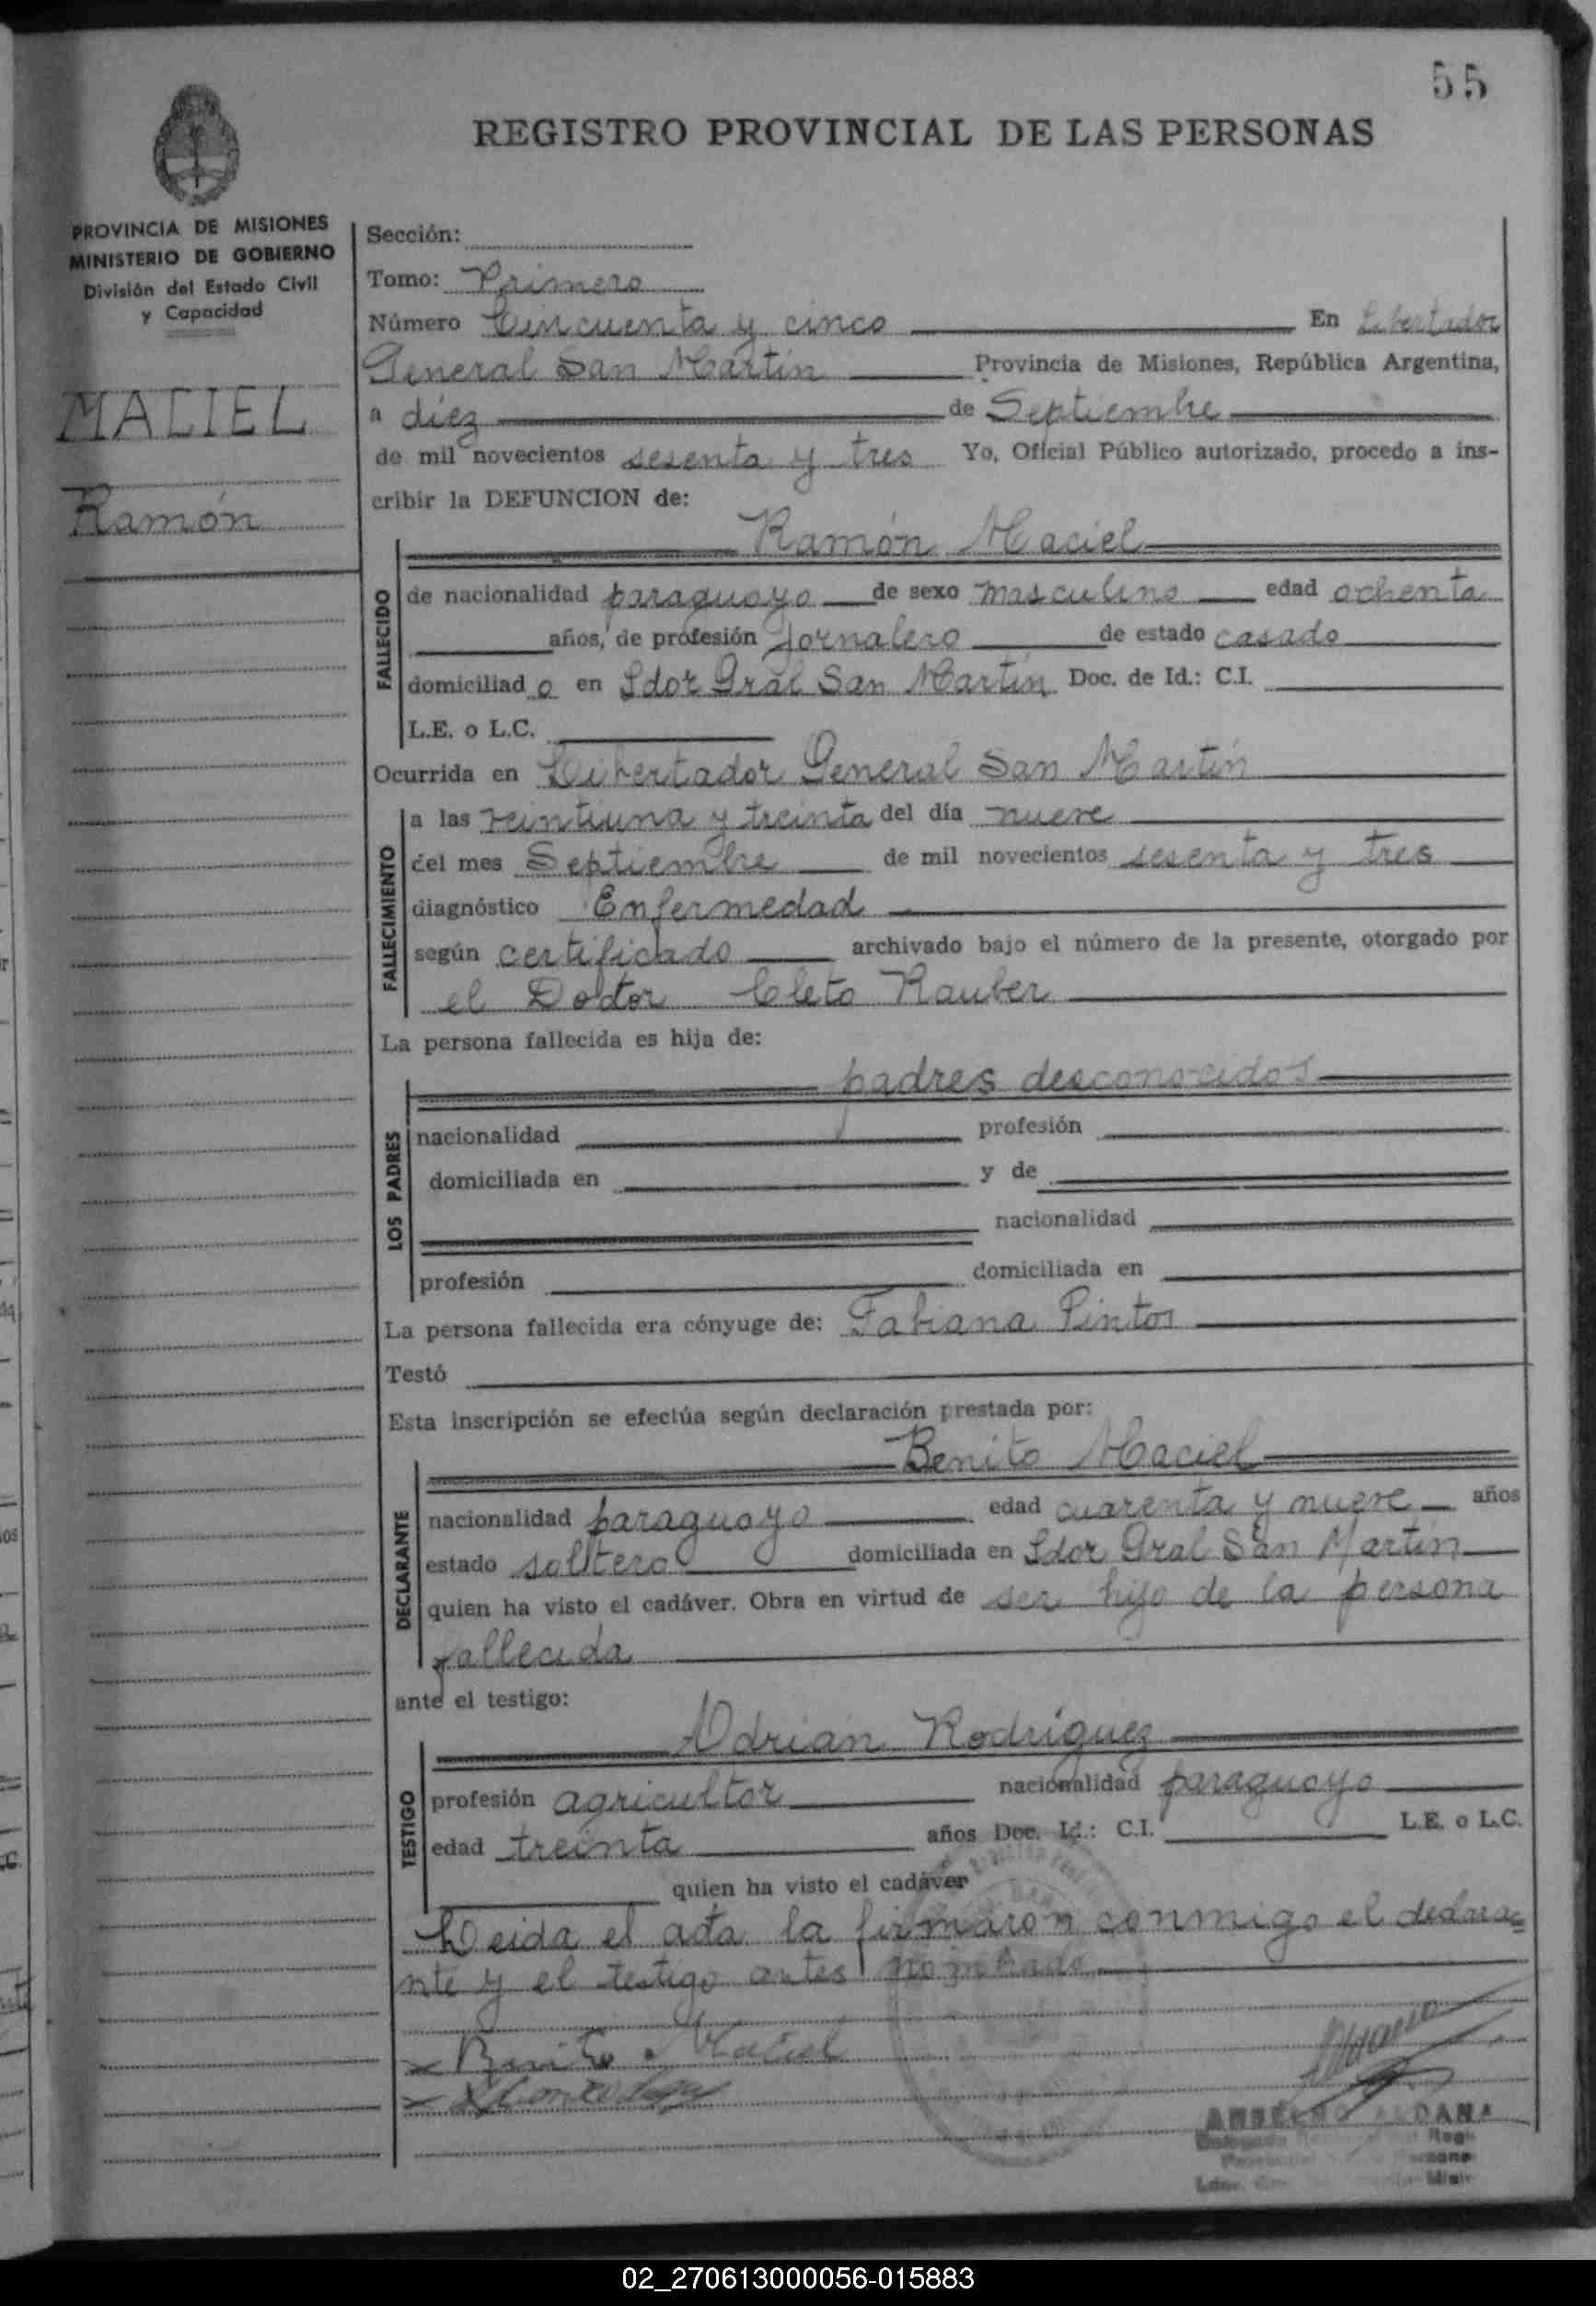 55
REGISTRO PROVINCIAL DE LAS PERSONAS
PROVINCIA DE MISIONES
MINISTERIO DE GOBIERNO
División del Estado Civil
y Capacidad
MACIEL
Ramón
Sección:
Tomo: Primero
Número Cincuenta y cinco En Libertador
General San Martín Provincia de Misiones, República Argentina,
a diez de Septiembre
de mil novecientos sesenta y tres Yo, Oficial Público autorizado, procedo a ins-
cribir la DEFUNCION de:
Ramón Maciel
FALLECIDO
de nacionalidad paraguayo de sexo masculino edad ochenta
años, de profesión Jornalero de estado casado
domiciliad o en Ldor Gral San Martín Doc. de Id.: C.I.
L.E. o L.C.
Ocurrida en Libertador General San Martín
FALLECIMIENTO
a las veintiuna y treinta del día nueve
del mes Septiembre de mil novecientos sesenta y tres
diagnóstico Enfermedad
según certificado archivado bajo el número de la presente, otorgado por
el Doctor Cleto Rauber
La persona fallecida es hija de:
padres desconocidos
LOS PADRES
nacionalidad profesión
domiciliada en y de
nacionalidad
profesión domiciliada en
La persona fallecida era cónyuge de: Fabiana Pintos
Testó
Esta inscripción se efectúa según declaración prestada por:
Benito Maciel
DECLARANTE
nacionalidad paraguayo edad cuarenta y nueve años
estado soltero domiciliada en Ldor Gral San Martín
quien ha visto el cadáver. Obra en virtud de ser hijo de la persona
fallecida
ante el testigo:
Adrián Rodríguez
TESTIGO
profesión agricultor nacionalidad paraguayo
edad treinta años Doc. Id.: C.I. L.E. o L.C.
quien ha visto el cadáver
Leida el acta la firmaron conmigo el declara=
nte y el testigo antes nombrado
Benito Maciel
ANSELMO ALDANA
02_270613000056-015883